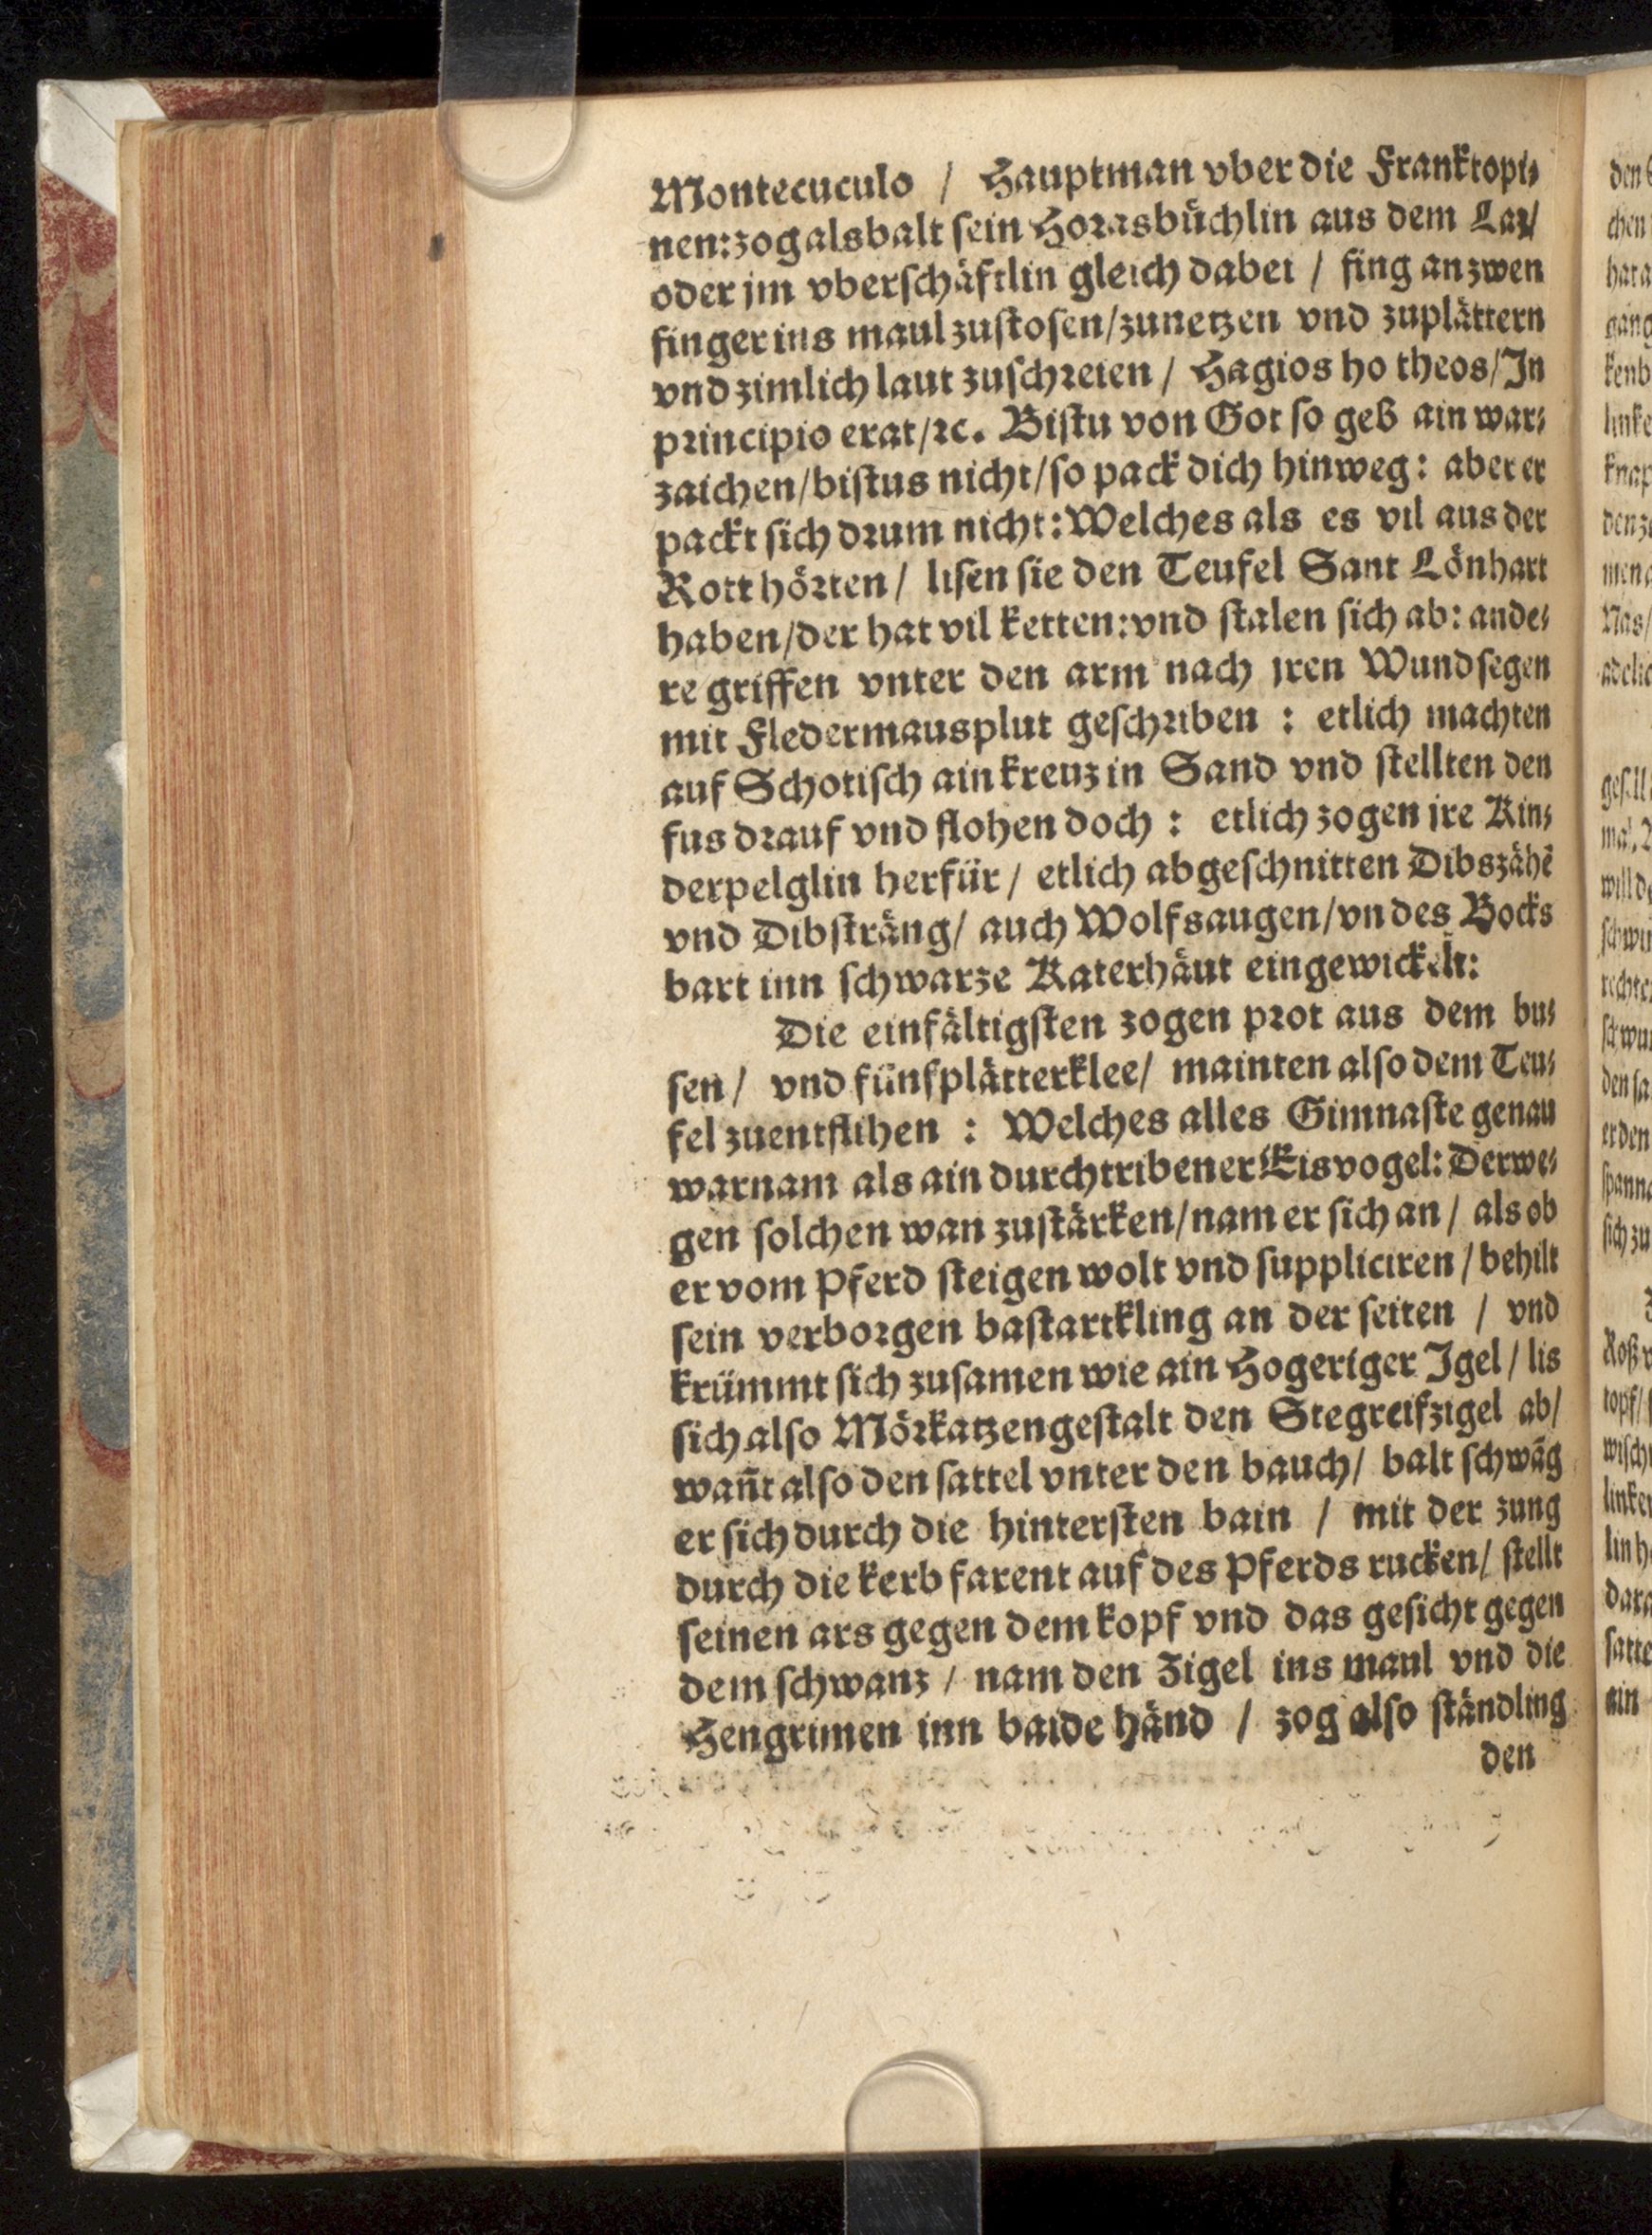 Montecuculo / Hauptman vber die Franktopi⸗
nen: zog alsbalt sein Horasbüchlin aus dem Laz/
oder jm vberschäftlin gleich dabei / fing an zwen
finger ins maul zustosen/zunetzen vnd zuplättern
vnd zimlich laut zuschreien / Hagios ho theos/In
principio erat/ꝛc. Bistu von Got so geß ain war⸗
zaichen/bistus nicht/so pack dich hinweg: aber er
packt sich drum nicht: Welches als es vil aus der
Rott hörten / lisen sie den Teufel Sant Lönhart
haben/der hat vil ketten: vnd stalen sich ab: ande⸗
re griffen vnter den arm nach jren Wundsegen
mit Fledermausplut geschriben : etlich machten
auf Schotisch ain kreuz in Sand vnd stellten den
fus drauf vnd flohen doch : etlich zogen jre Kin⸗
derpelglin herfür / etlich abgeschnitten Dibszähē
vnd Dibsträng/ auch Wolfsaugen/vn des Bocks
bart inn schwarze Katerhäut eingewickelt:
Die einfältigsten zogen prot aus dem bu⸗
sen / vnd fünfplätterklee/ mainten also dem Teu⸗
fel zuentflihen : Welches alles Gimnaste genau
warnam als ain durchtribener Eisvogel: Derwe⸗
gen solchen wan zustärken/nam er sich an / als ob
er vom Pferd steigen wolt vnd suppliciren / behilt
sein verborgen bastartkling an der seiten / vnd
krümmt sich zusamen wie ain Hogeriger Igel / lis
sich also Mörkatzengestalt den Stegreifzigel ab/
wañt also den sattel vnter den bauch/ balt schwāg
er sich durch die hintersten bain / mit der zung
durch die kerb farent auf des Pferds rucken/ stellt
seinen ars gegen dem kopf vnd das gesicht gegen
dem schwanz / nam den Zigel ins maul vnd die
Hengrimen inn baide händ / zog also ständling
den